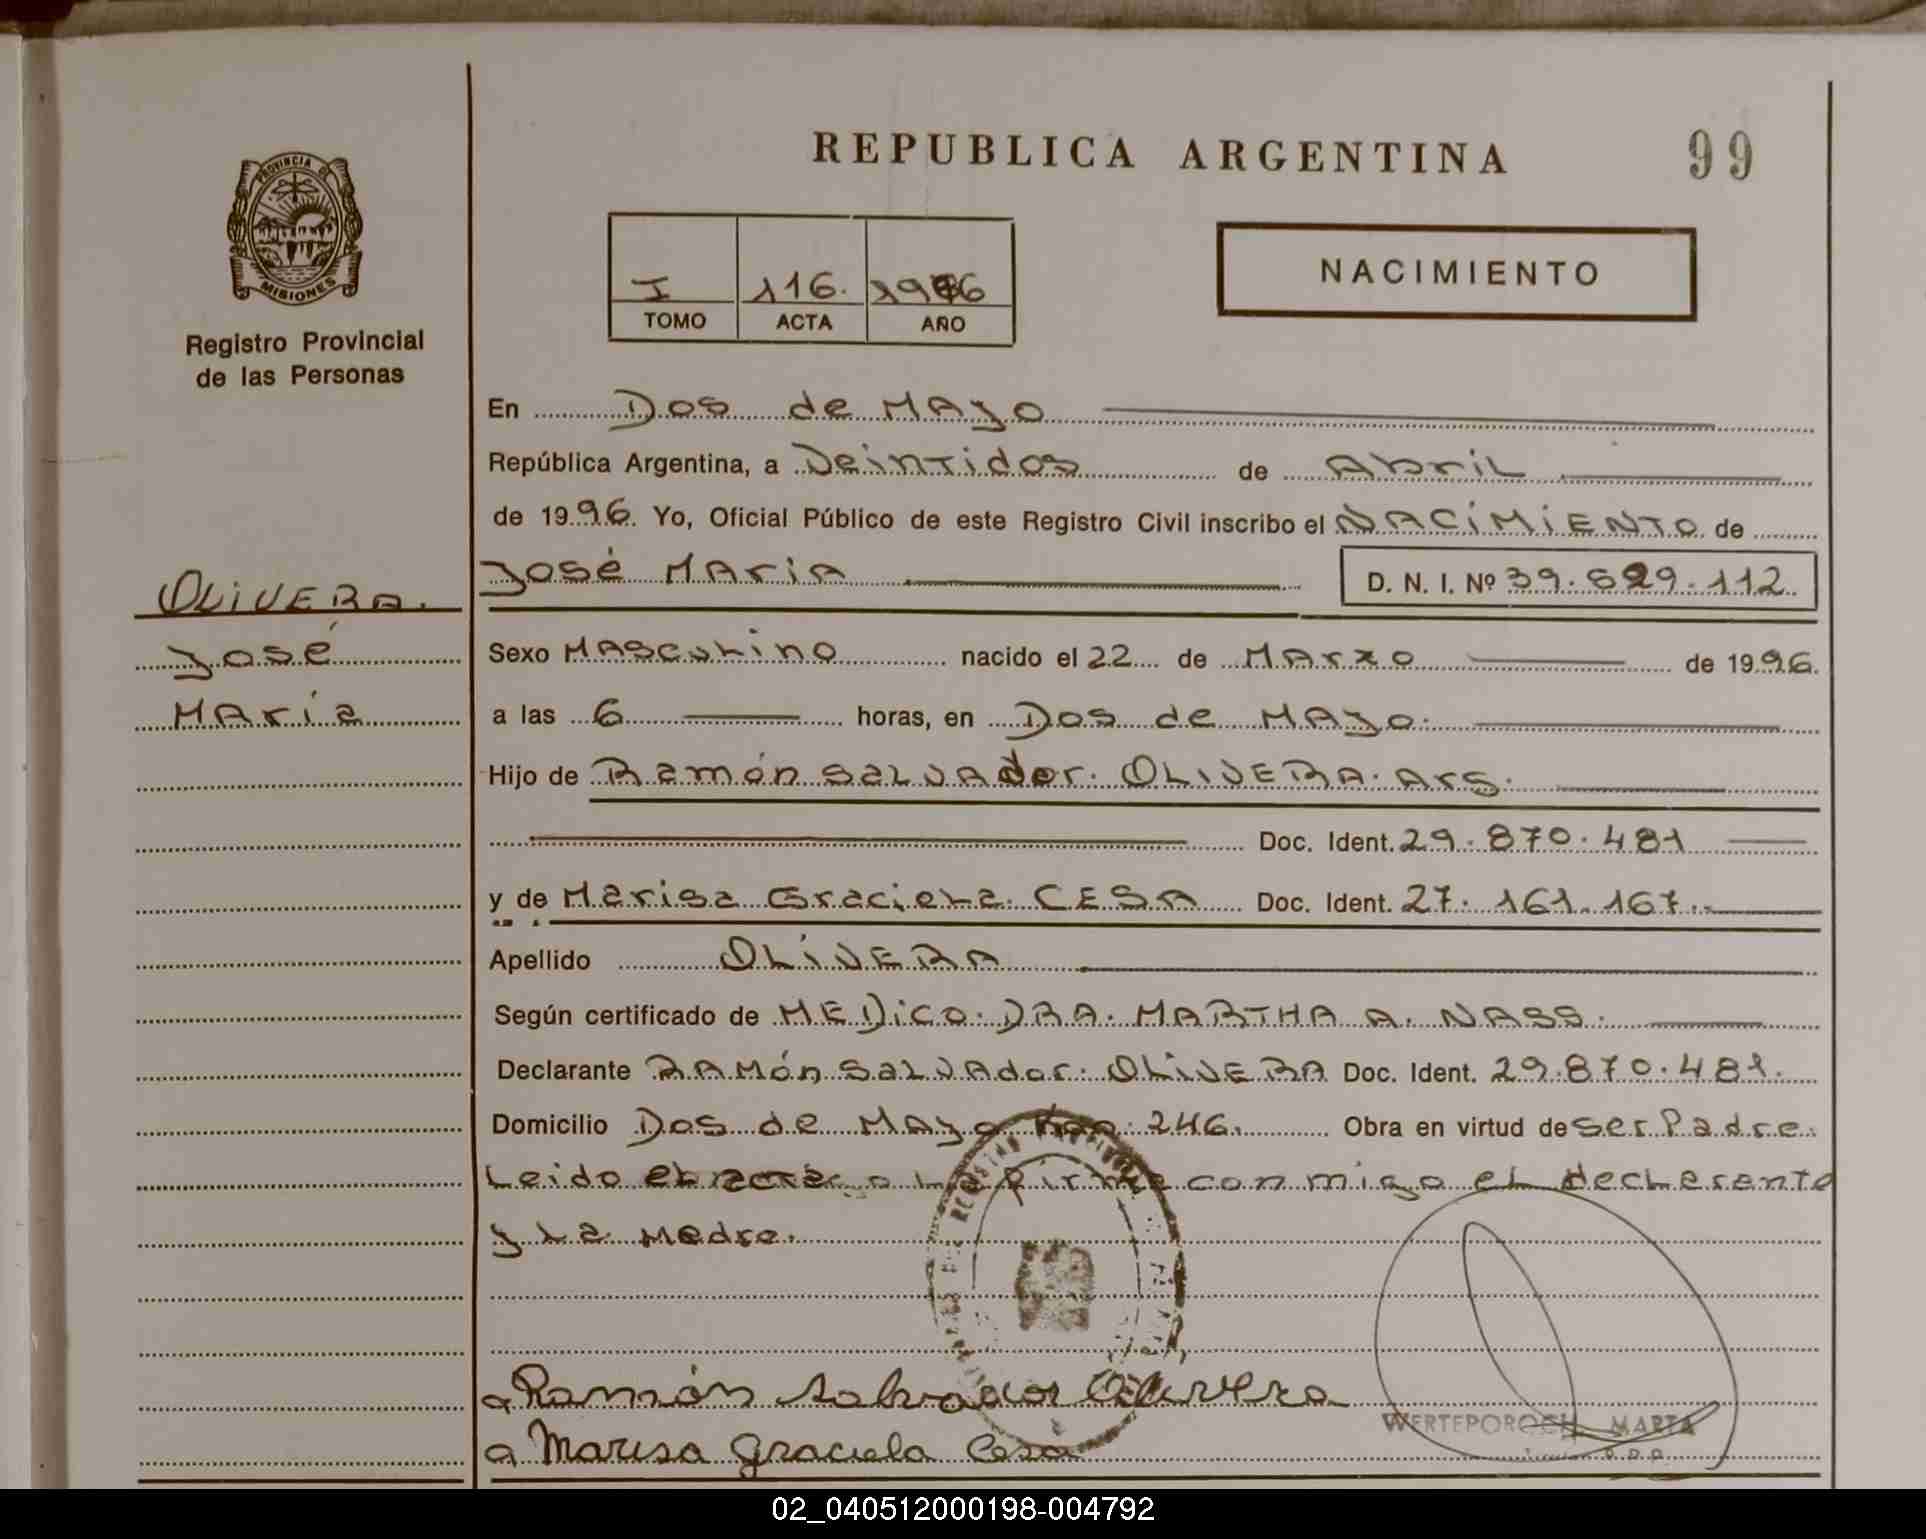 REPUBLICA ARGENTINA
99
PROVINCIA DE
MISIONES
Registro Provincial
de las Personas
I 116. 1996
TOMO ACTA AÑO
NACIMIENTO
En Dos de Mayo
República Argentina, a Veintidos de Abril
de 1996. Yo, Oficial Público de este Registro Civil inscribo el NACIMIENTO de
José María D. N. I. Nº 39.529.112.
OLIVERA.
José
María
Sexo Masculino nacido el 22 de Marzo de 1996.
a las 6 horas, en Dos de Mayo.
Hijo de Ramón Salvador. OLIVERA. Arg.
Doc. Ident. 29.870.481
y de Marisa Graciela. CESA Doc. Ident. 27.161.167.
Apellido OLIVERA
Según certificado de MEDICO. DRA. MARTHA A. NASS.
Declarante RAMón Salvador. OLIVERA Doc. Ident. 29.870.481.
Domicilio Dos de Mayo Km. 246. Obra en virtud de ser Padre.
Leido el acta, la firma conmigo el declarante
y la Madre.
Ramón Salvador Olivera
Marisa Graciela Cesa
WERTEPOROCH MARTA
02_040512000198-004792